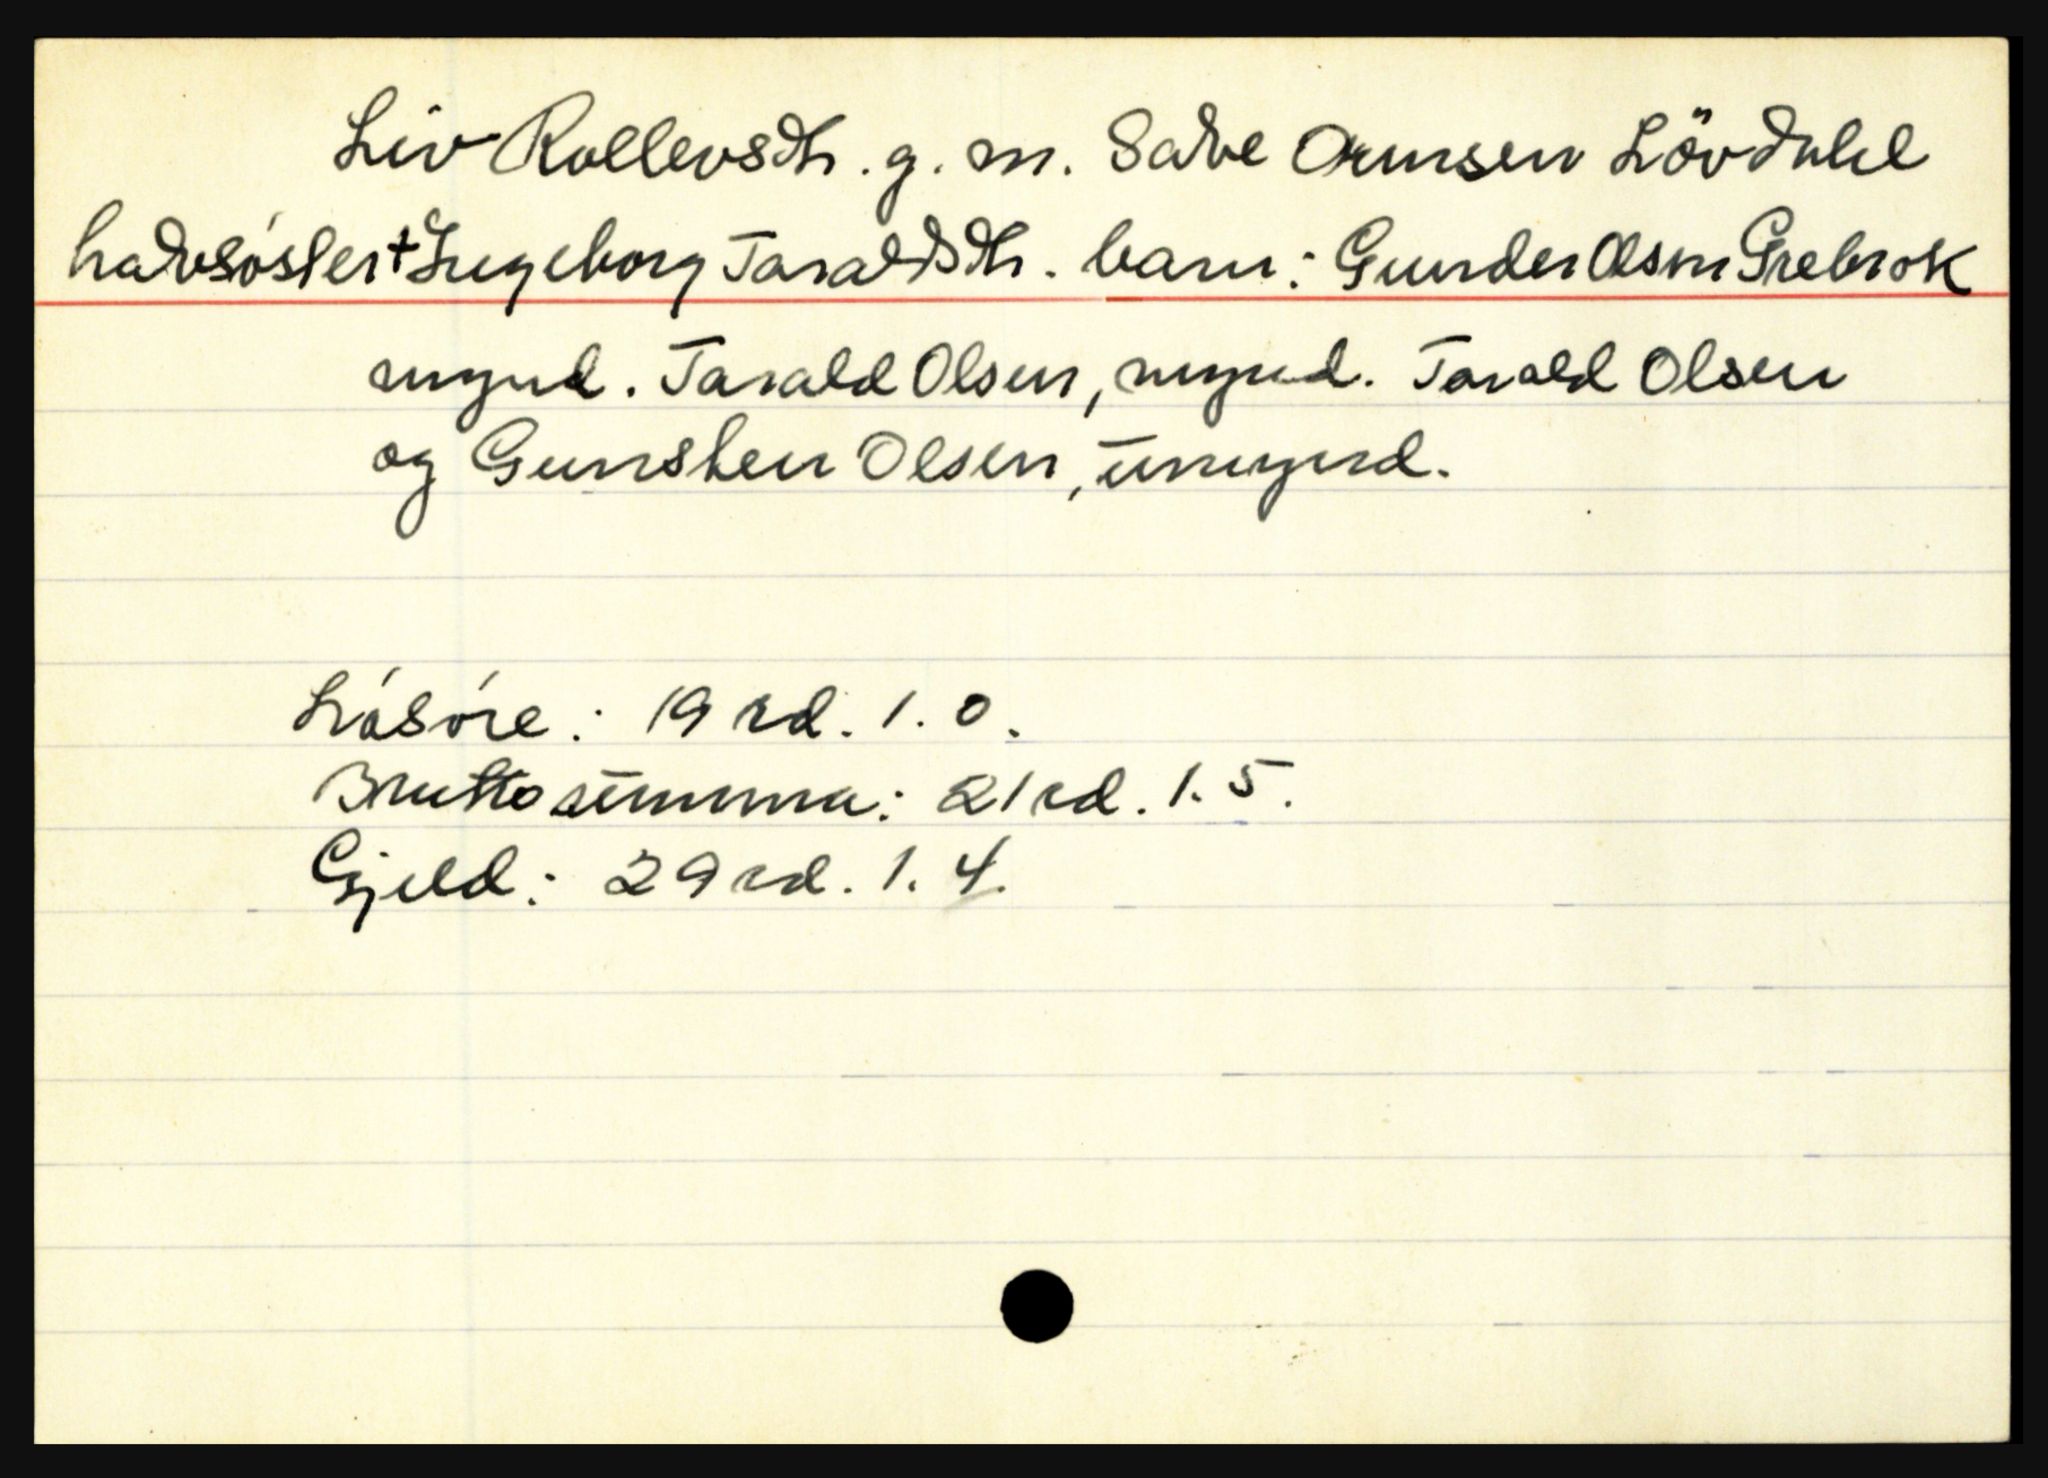 Liv Rollevsdtr. g. m. Salve Ormsen Lövdahl
halvsöster + Ingeborg Taraldsdtr. barn: Gunder Olsen Grebrok
mynd. Tarald Olsen, mynd. Tarald Olsen
og Gunsten Olsen, umynd.
Lösöre: 19 rd. 1. 0.
Bruttosumma: 21 rd. 1. 5.
Gjeld: 29 rd. 1. 4.